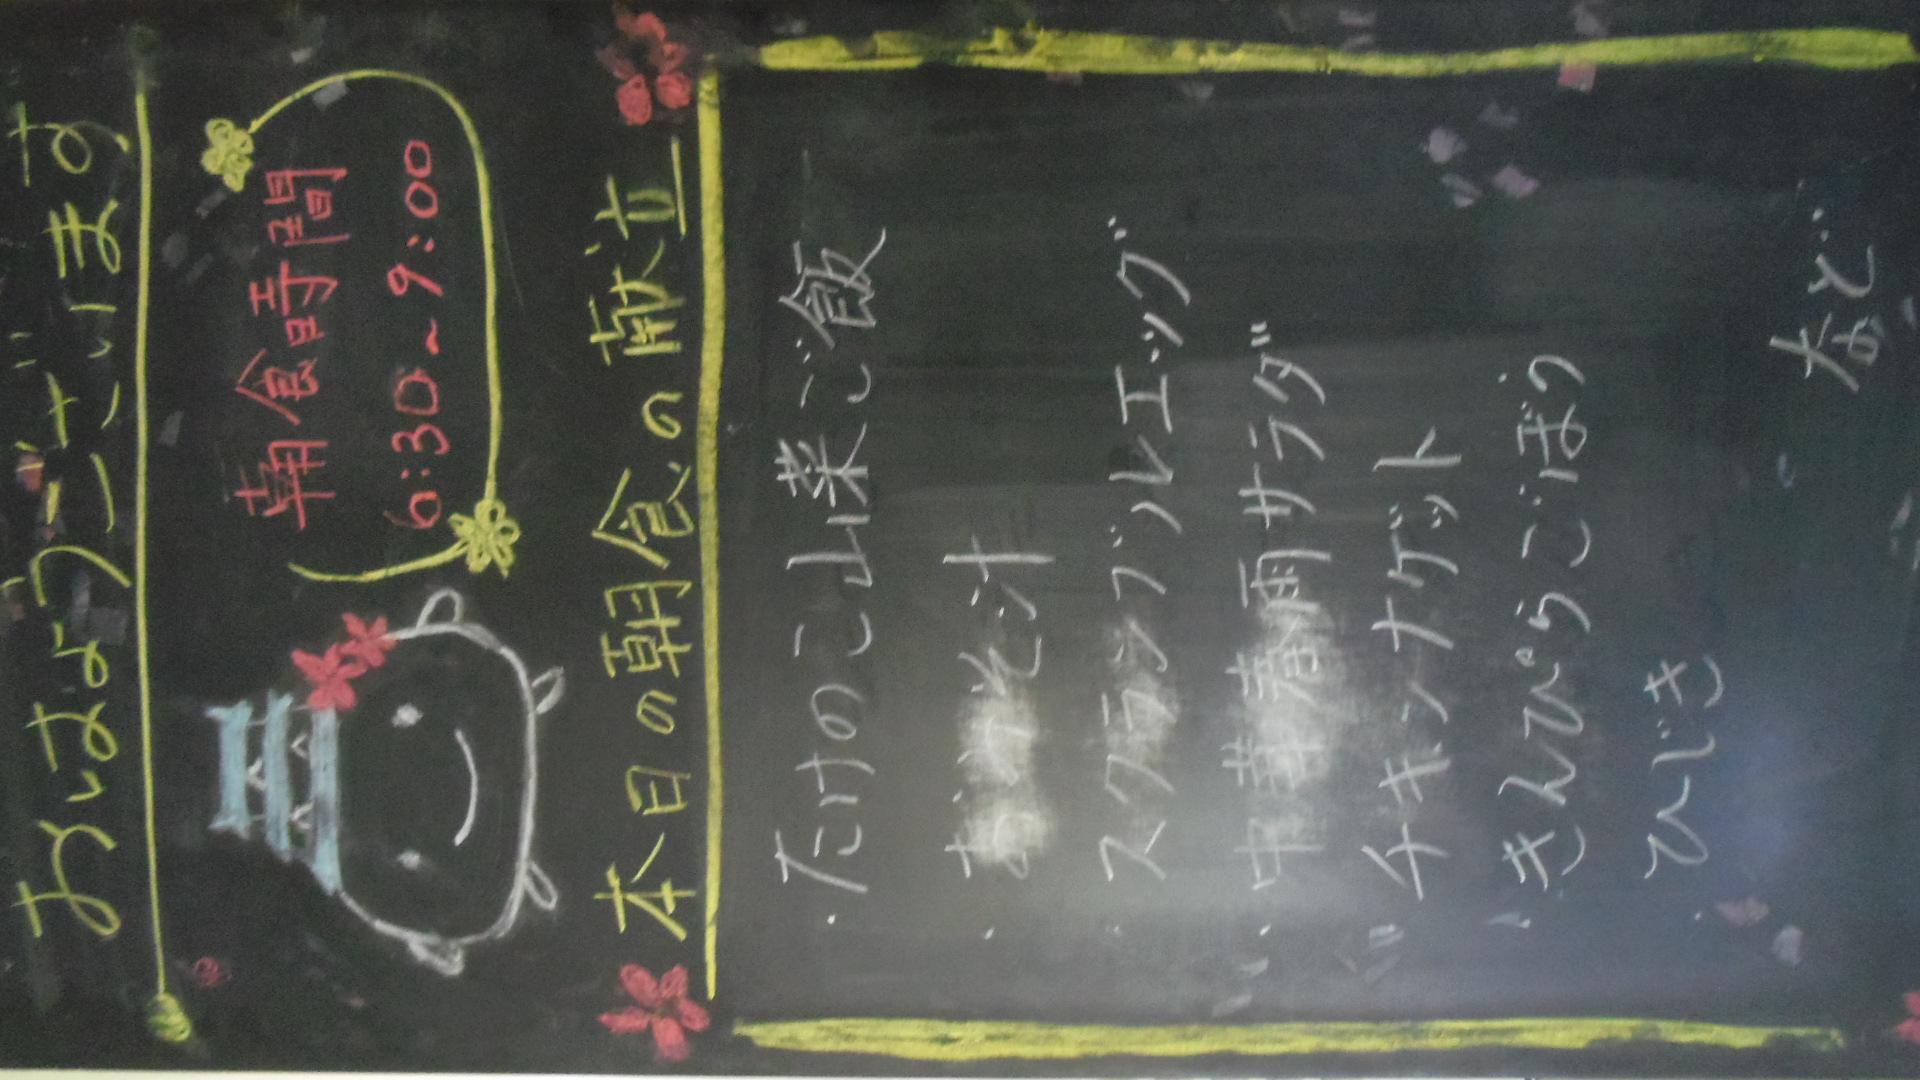 おはようございます
朝食時間
6:30~9:00
本日の朝食の献立
・たけのこ山菜ご飯
・おみそ汁
・スクランブルエッグ
・中華春雨サラダ
・チキンナゲット
・きんぴらごぼう
・ひじき
など